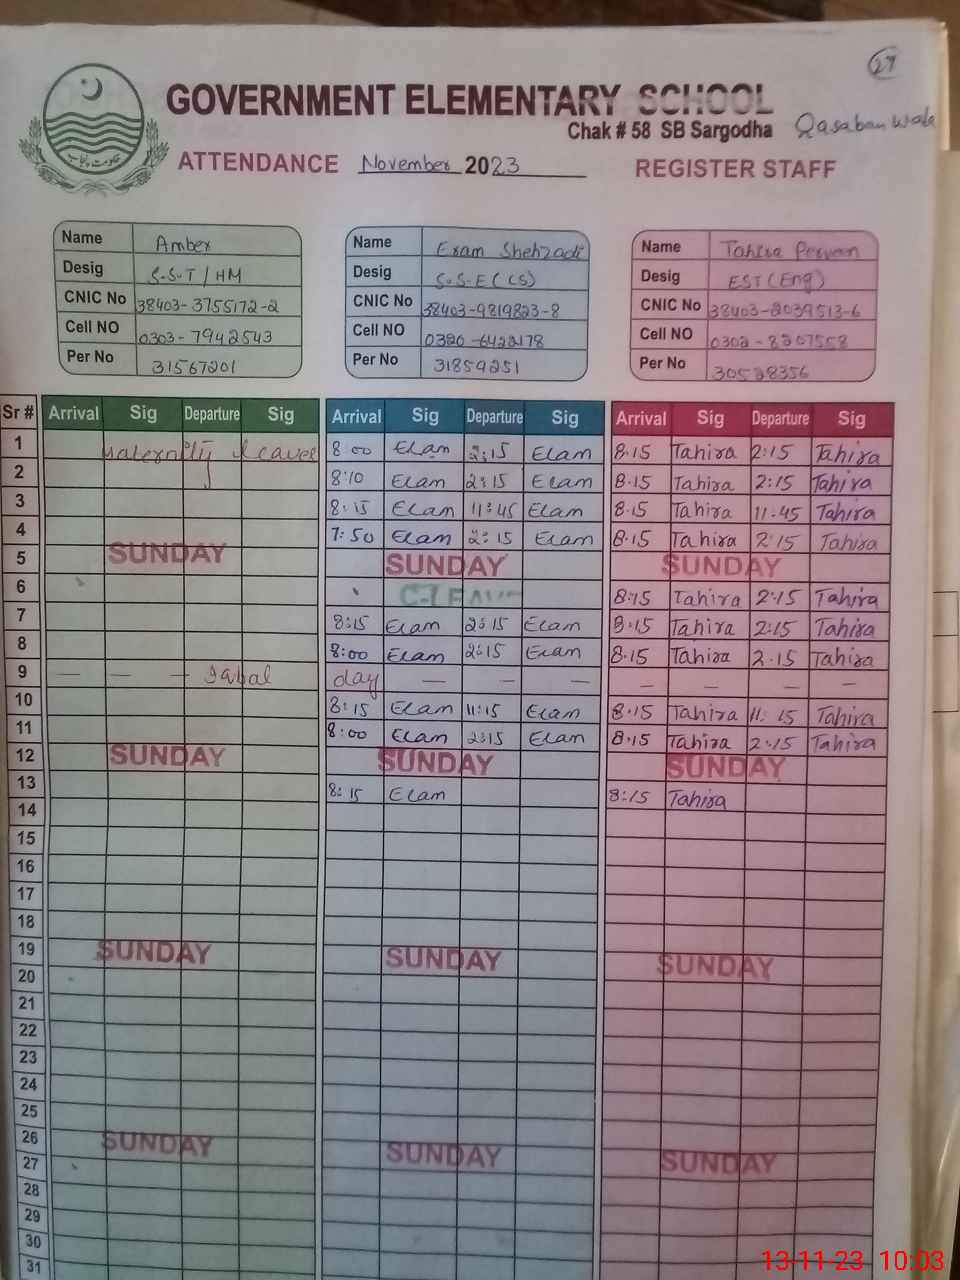 27
GOVERNMENT ELEMENTARY SCHOOL
Chak # 58 SB Sargodha Qasaban wala
ATTENDANCE November 2023 REGISTER STAFF
Name Amber
Desig S-S-T/HM
CNIC No 38403-3755172-2
Cell NO 0303-7942543
Per No 31567201
Name Eram Shehzadi
Desig S-S-E (CS)
CNIC No 38403-9819823-8
Cell NO 0320-6422178
Per No 31859251
Name Tahira Perveen
Desig EST (Eng)
CNIC No 38403-2039513-6
Cell NO 0302-8207558
Per No 30528356
Sr # Arrival Sig Departure Sig Arrival Sig Departure Sig Arrival Sig Departure Sig
1 Maternity leaves 8:00 Eram 2:15 Eram 8.15 Tahira 2:15 Tahira
2 8:10 Eram 2:15 Eram 8.15 Tahira 2:15 Tahira
3 8:15 Eram 11:45 Eram 8.15 Tahira 11.45 Tahira
4 7:50 Eram 2:15 Eram 8.15 Tahira 2:15 Tahira
5 SUNDAY SUNDAY SUNDAY
6 C-LEAVE 8:15 Tahira 2:15 Tahira
7 8:15 Eram 2:15 Eram 8.15 Tahira 2:15 Tahira
8 8:00 Eram 2:15 Eram 8.15 Tahira 2.15 Tahira
9 — — — Iqbal day — — — — — — —
10 8:15 Eram 11:15 Eram 8.15 Tahira 11:15 Tahira
11 8:00 Eram 2:15 Eram 8.15 Tahira 2:15 Tahira
12 SUNDAY SUNDAY SUNDAY
13 8:15 Eram 8:15 Tahira
14
15
16
17
18
19 SUNDAY SUNDAY SUNDAY
20
21
22
23
24
25
26 SUNDAY SUNDAY SUNDAY
27
28
29
30
31
13-11-23 10:03